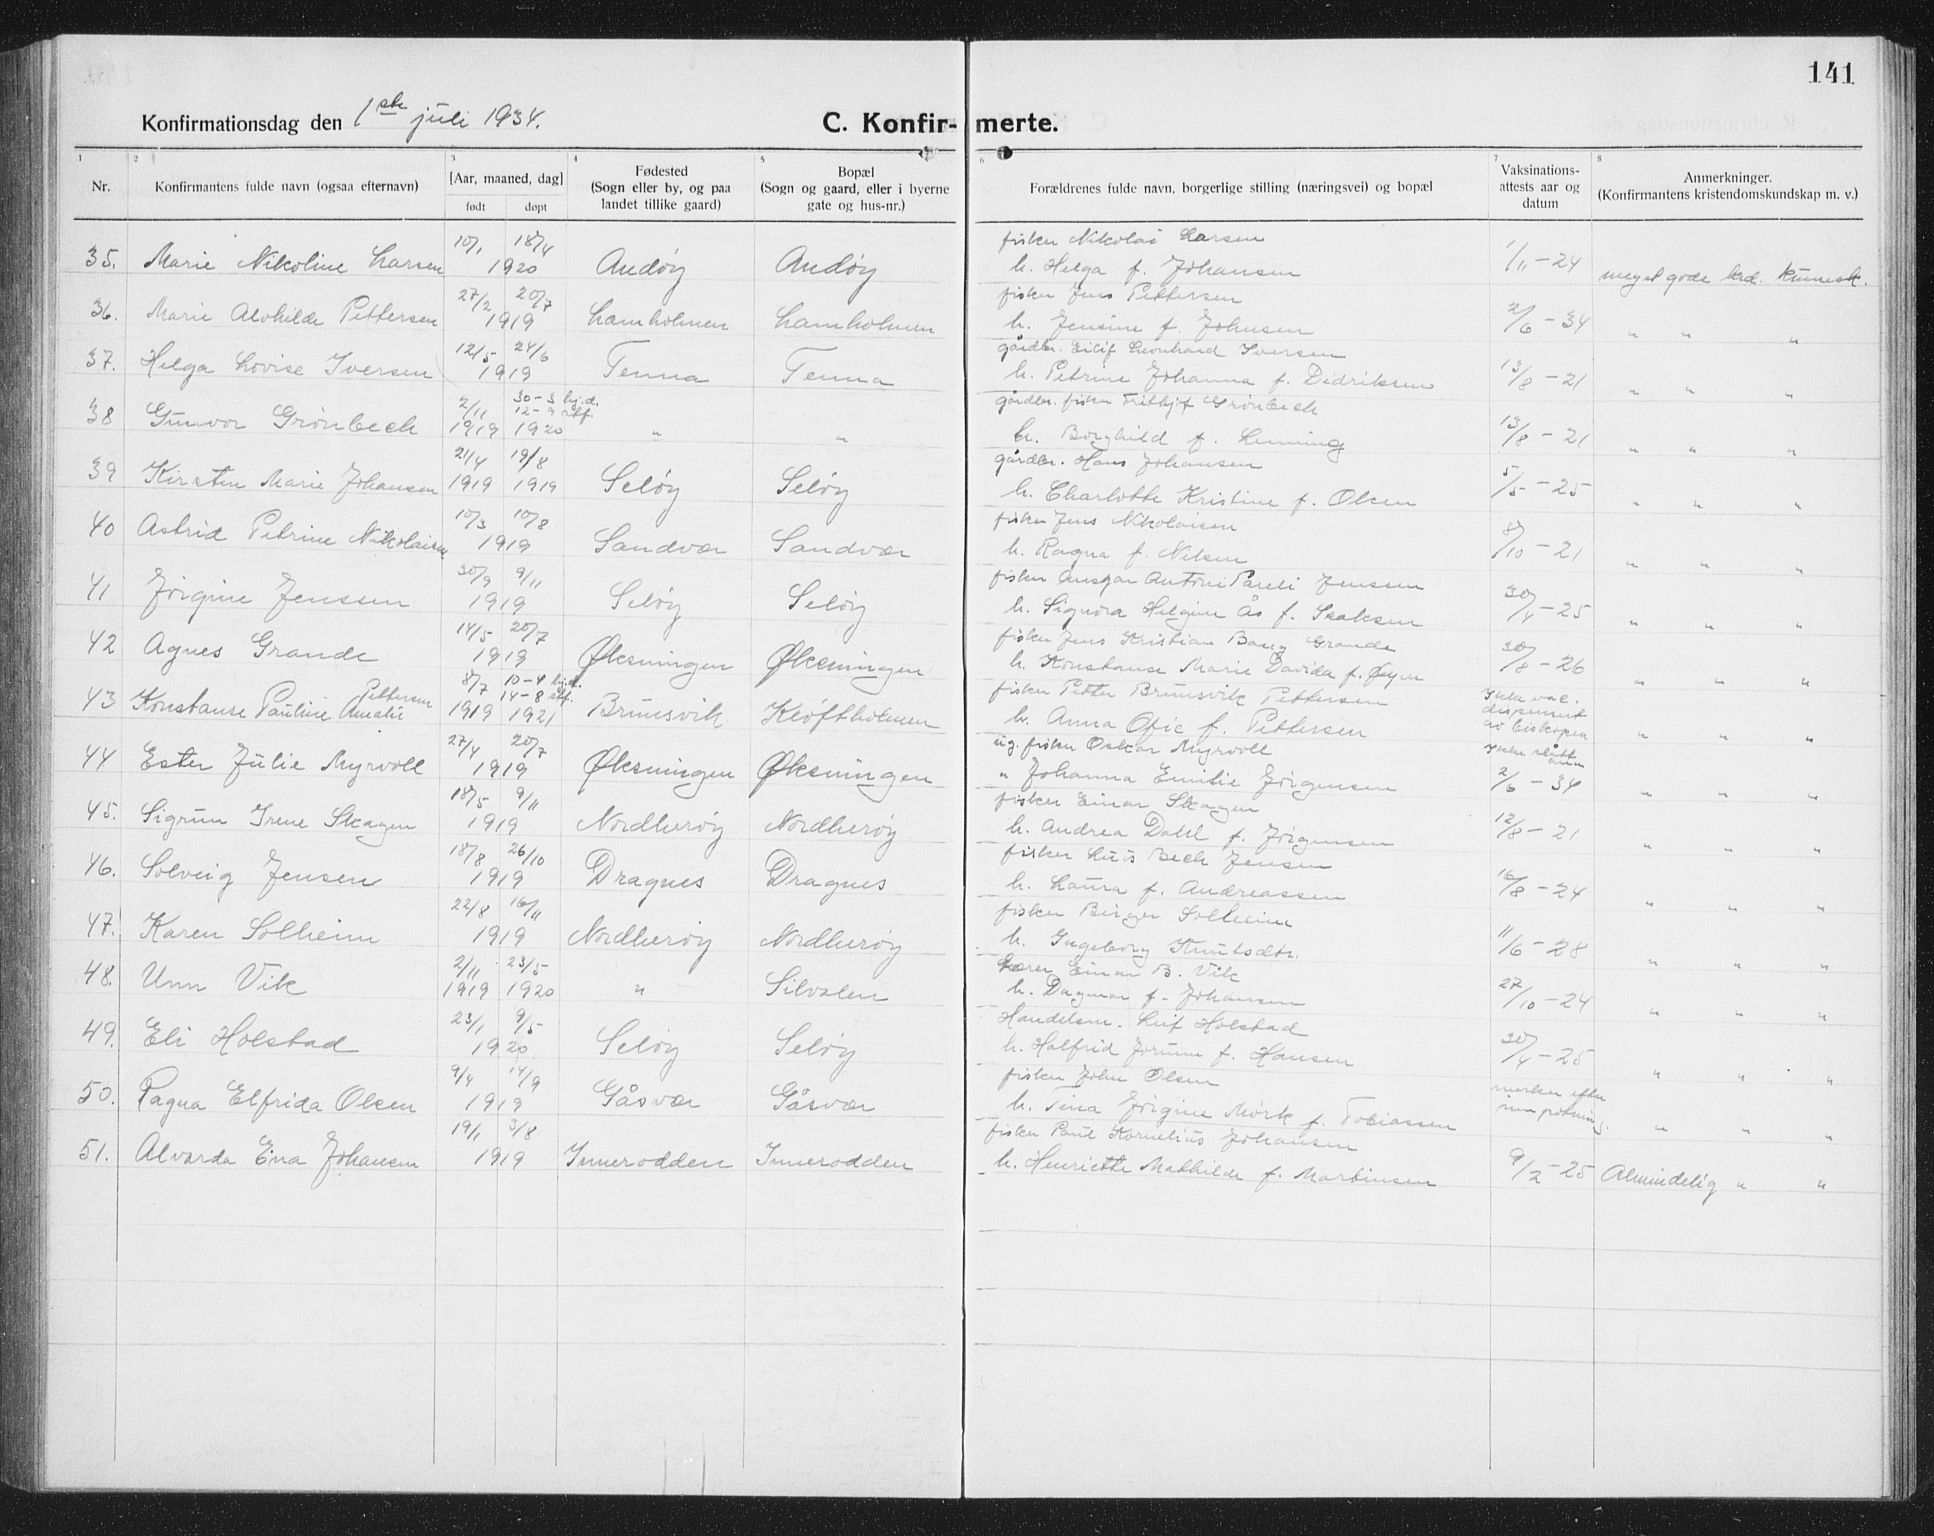 141
Konfirmationsdag den 1ste juli 1934.
C. Konfir- merte.
1 2 3 4 5 6 7 8
Nr.
Konfirmantens fulde navn (ogsaa efternavn)
[Aar, maaned, dag]
født døpt
Fødested
(Sogn eller by, og paa
landet tillike gaard)
Bopæl
(Sogn og gaard, eller i byerne
gate og hus-nr.)
Forældrenes fulde navn, borgerlige stilling (næringsvei) og bopæl
Vaksinations-
attests aar og
datum
Anmerkninger.
(Konfirmantens kristendomskundskap m. v.)
10/1 18/4 fisker Nikolai Larsen
35. Marie Nikoline Larsen 1920 Andøy Andøy h. Helga f. Johansen 1/11-24 meget gode krd. kunnsk.
27/2 20/7 fisker Jens Pettersen
36. Marie Alvhilde Pettersen 1919 Lamholmen Lamholmen h. Jensine f. Johnsen 2/6-34 " " "
12/5 24/6 gårdbr. Eilif Leonhard Iversen
37. Helga Lovise Iversen 1919 Tenna Tenna h. Petrine Johanna f. Didriksen 13/8-21 " " "
2/11 30-3 hj.d. gårdbr. fisker Fridtjof Grønbech
12-9 stf.
38 Gunvor Grønbech 1919 1920 " " h. Borghild f. Henning 13/8-21 " " "
21/4 19/8 gårdbr. Hans Johansen
39 Kirsten Marie Johansen 1919 1919 Seløy Seløy h. Charlotte Kristine f. Olsen 5/5-25 " " "
10/3 10/8 fisker Jens Nikolaisen
40 Astrid Petrine Nikolaisen 1919 Sandvær Sandvær h. Ragna f. Nilsen 8/10-21 " " "
30/9 9/11 fisker Ansgar Antoni Pareli Jenssen
41 Jørgine Jenssen 1919 Seløy Seløy h. Signora Helgine Ås f. Isaksen 30/4-25 " " "
14/5 20/7 fisker Jens Kristian Bang Grande
42 Agnes Grande 1919 Øksningen Øksningen h. Konstanse Marie Davida f. Øyen 30/8-26 " " "
Pettersen 8/7 10-4 hj.d. fisker Petter Brunsvik Pettersen Ikke vac.
14-8 stf. dispensert
43 Konstanse Pauline Amalie 1919 1921 Brunsvik Kløftholmen h. Anna Ofie f. Pettersen av biskopen " " "
27/4 20/7 ug. fisker Oskar Myrvoll Ikke slått an
44 Ester Julie Myrvoll 1919 Øksningen Øksningen " Johanna Emilie Jørgensen 2/6-34 " " "
18/5 9/11 fisker Einar Skagen
45. Sigrun Irene Skagen 1919 Nordherøy Nordherøy h. Andrea Dahl f. Jørgensen 12/8-21 " " "
18/8 26/10 fisker Luis Bech Jensen
46. Solveig Jensen 1919 Dragnes Dragnes h. Laura f. Andreassen 16/8-24 " " "
22/8 16/11 fisker Birger Solheim
47. Karen Solheim 1919 Nordherøy Nordherøy h. Ingeborg Knutsdtr. 11/6-28 " " "
2/11 23/5 Lærer Einar B. Vik
48. Unn Vik 1919 1920 " Silvalen h. Dagmar f. Johansen 27/10-24 " " "
23/1 9/5 Handelsm. Leif Holstad
49. Eli Holstad 1920 Seløy Seløy h. Halfrid Jorunn f. Hansen 30/4-25 " " "
9/4 14/9 fisker John Olsen merker efter
50. Ragna Elfrida Olsen 1919 Gåsvær Gåsvær h. Tina Jørgine Mørk f. Tobiassen " " "
19/1 3/8 fisker Paul Kornelius Johansen
51. Alvarda Ena Johansen 1919 Innerodden Innerodden h. Henriette Mathilde f. Martinsen 9/2-25 Almindelig " "